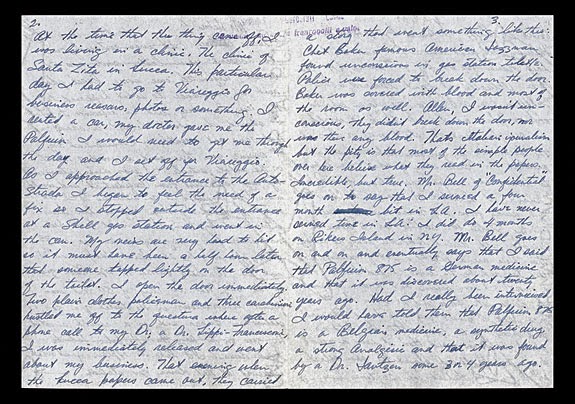 2.
At the time that this thing came off, I
was living in a clinic. The clinic of
Santa Zita in Lucca. This particular
day I had to go to Viareggio for
business reasons, photos or something. I
rented a car, my doctor gave me the
Palfium I would need to get me through
the day and I set off for Viareggio.
As I approached the entrance to the Auto-
Strada I began to feel the need of a
fix so I stopped outside the entrance
at a Shell gas station and went in
the can. My veins are very hard to hit
so it must have been a half hour later
that someone tapped lightly on the door
of the toilet. I open the door immediately
Two plain clothes policeman and three carabinieri
hustled me off to the questura where after a
phone call to my Dr, a Dr. Lippi-Francesconi,
I was immediately released and went
about my business. That evening when
the Lucca papers came out, they carried
3.
a story that went something like this:
Chet Baker famous American Jazzman
found unconscious in gas station toilet.
Police were forced to break down the door.
Baker was covered with blood and most of
the room as well. Allen, I wasn't un-
conscious, they didn't break down the door, nor
was there any blood. That's Italian journalism
but the pity is that most of the simple people
over here believe what they read in the papers.
Incredible but true. Mr. Bell of "Confidential"
goes on to say that I served a four
month bit in L.A. I have never
served time in L.A. I did do 4 months
on Rikers Island in N.Y. Mr. Bell goes
on and on and eventually says that I said
that Palfium 875 is a German medicine
and that it was discovered about twenty
years ago. Had I really been interviewed
I would have told them that Palfium 875
is a Belgian medicine, a synthetic drug,
a strong Analgesic and that it was found
by a Dr. Jantzen some 3 or 4 years ago.